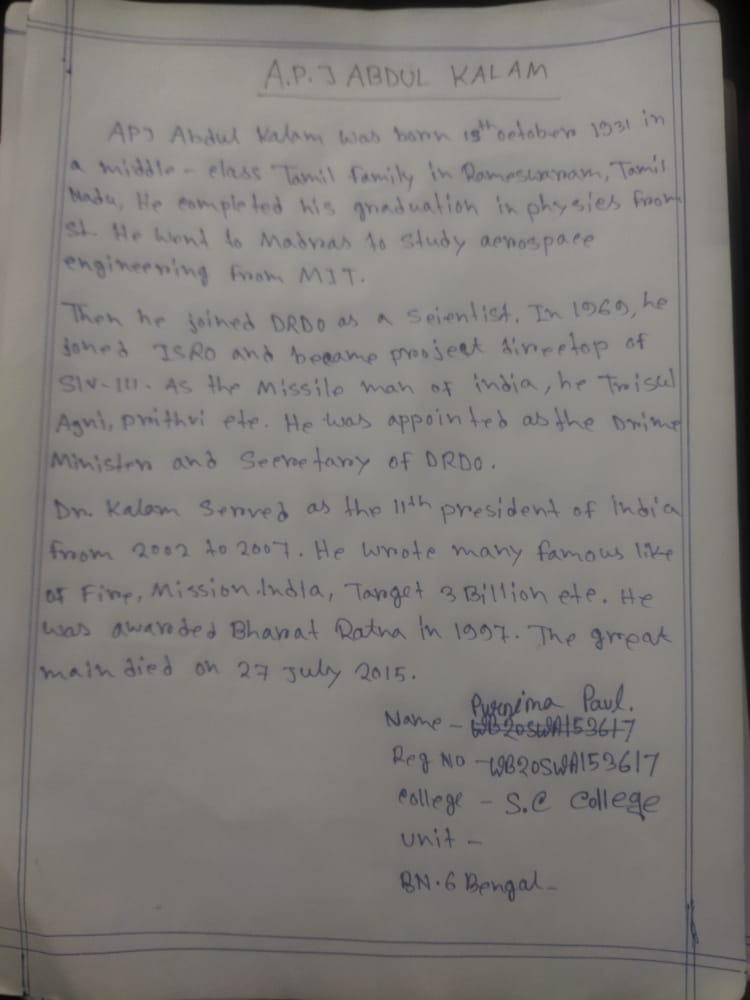 A.P.J ABDUL KALAM
APJ Abdul Kalam was born 15th october 1931 in
a middle-class Tamil family in Rameswaram, Tamil
Nadu, He completed his graduation in physics from
St. He went to Madras to study aerospace
engineering from MIT.
Then he joined DRDO as a Scientist. In 1969, he
joned ISRO and became project director of
SLV-III. As the Missile man of india, he Trisul
Agni, prithvi etc. He was appointed as the Prime
Minister and Secretary of DRDO.
Dr. Kalam Served as the 11th president of India
from 2002 to 2007. He wrote many famous like
of Fire, Mission India, Target 3 Billion etc. He
was awarded Bharat Ratna in 1997. The great
main died on 27 July 2015.
Purnima Paul.
Name - WB20SWA153617
Reg No - WB20SWA153617
college - S.C College
unit -
BN.6 Bengal-